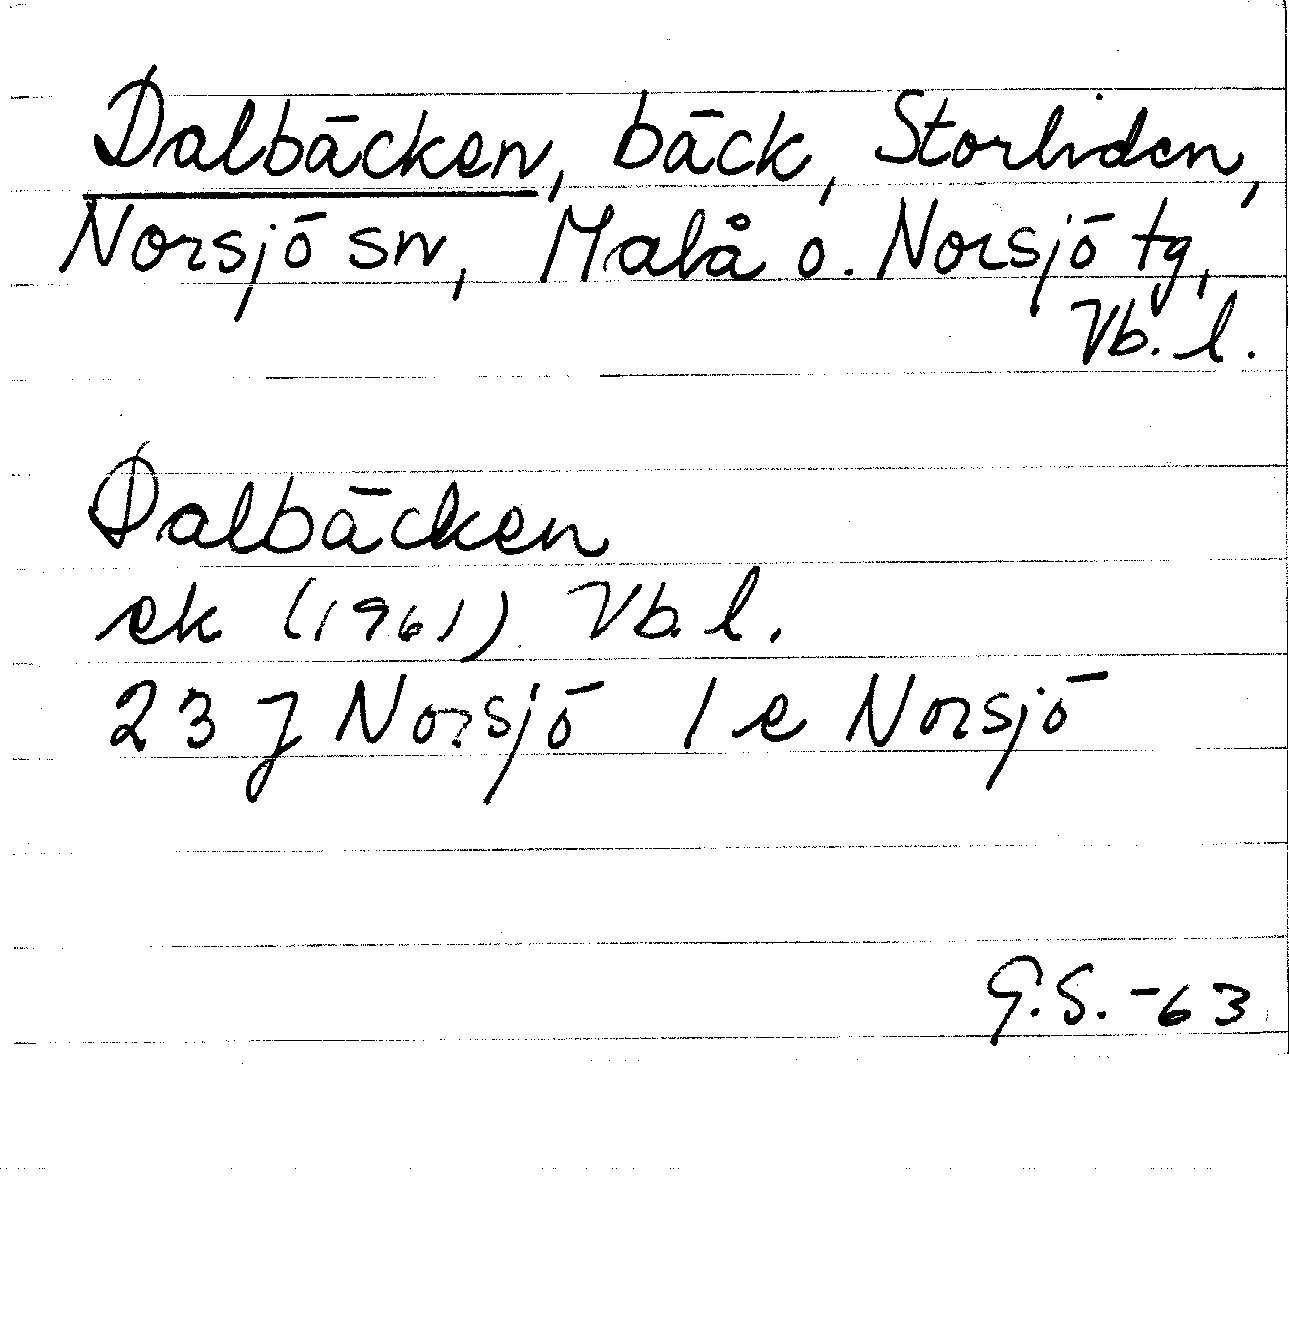 Dalbäcken, bäck, Storliden,
Norsjö sn, Malå o. Norsjö tg,
Vb. l.
Dalbäcken
ek (1961) Vb. l.
23 J Norsjö 1 e Norsjö
G.S. -63